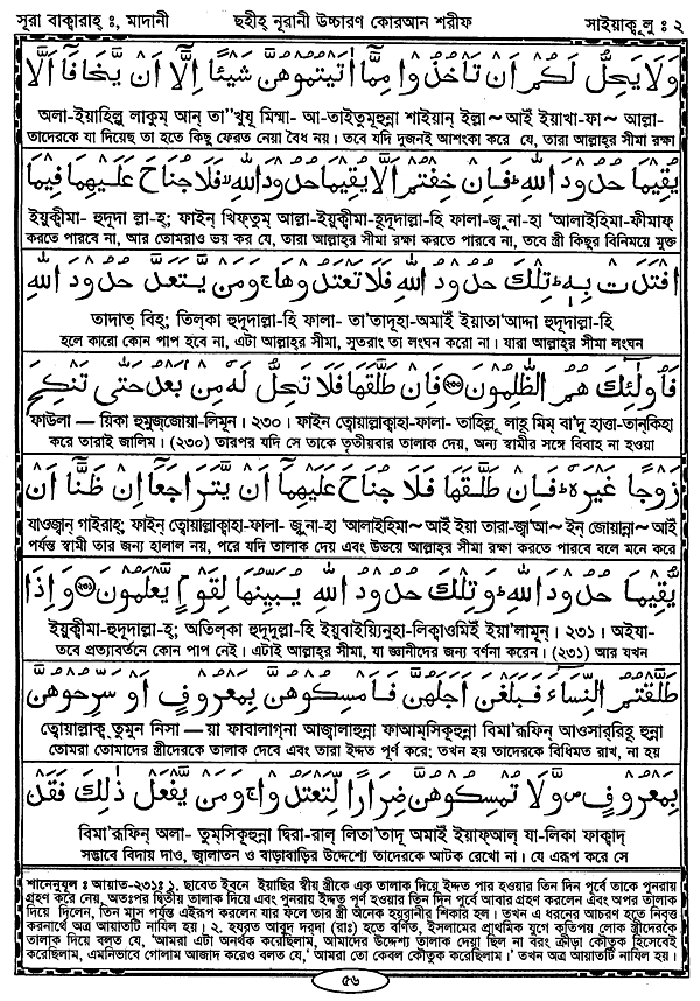 সূরা বাক্বারাহ্ ঃ, মাদানী ছহীহ্ নূরানী উচ্চারণ কোরআন শরীফ সাইয়াক্বূলু ঃ ২
وَلَا يَحِلُّ لَكُمْ اَنْ تَاْخُذُوْا مِمَّا اٰتَيْتُمُوْهُنَّ شَيْـًٔا اِلَّا اَنْ يَّخَافَا اَلَّا
অলা-ইয়াহিল্লু লাকুম্ আন্ তা"খুযূ মিম্মা- আ-তাইতুমূহুন্না শাইয়ান্ ইল্লা~ আইঁ ইয়াখা-ফা~ আল্লা-
তাদেরকে যা দিয়েছ তা হতে কিছু ফেরত নেয়া বৈধ নয়। তবে যদি দুজনই আশংকা করে যে, তারা আল্লাহ্‌র সীমা রক্ষা
يُقِيْمَا حُدُوْدَ اللهِ ؕ فَاِنْ خِفْتُمْ اَلَّا يُقِيْمَا حُدُوْدَ اللهِ ۙ فَلَا جُنَاحَ عَلَيْهِمَا فِيْمَا
ইয়ুক্বীমা- হুদূদা ল্লা-হ্; ফাইন্ খিফ্‌তুম্ আল্লা-ইয়ুক্বীমা-হূদূদাল্লা-হি ফালা-জু্না-হা 'আলাইহিমা-ফীমাফ্
করতে পারবে না, আর তোমরাও ভয় কর যে, তারা আল্লাহ্‌র সীমা রক্ষা করতে পারবে না, তবে স্ত্রী কিছুর বিনিময়ে মুক্ত
افْتَدَتْ بِهٖ ؕ تِلْكَ حُدُوْدُ اللهِ فَلَا تَعْتَدُوْهَا ۚ وَمَنْ يَّتَعَدَّ حُدُوْدَ اللهِ
তাদাত্ বিহ্; তিল্‌কা হুদূদাল্লা-হি ফালা- তা'তাদূহা-অমাইঁ ইয়াতা'আদ্দা হুদূদাল্লা-হি
হলে কারো কোন পাপ হবে না, এটা আল্লাহ্‌র সীমা, সুতরাং তা লংঘন করো না। যারা আল্লাহ্‌র সীমা লংঘন
فَاُولٰٓئِكَ هُمُ الظّٰلِمُوْنَ ﴿۲۳۰﴾ فَاِنْ طَلَّقَهَا فَلَا تَحِلُّ لَهٗ مِنْ بَعْدُ حَتّٰى تَنْكِحَ
ফাউলা — য়িকা হুমুজ্জোয়া-লিমূন্। ২৩০। ফাইন্ ত্বোয়াল্লাক্বাহা-ফালা- তাহিল্লু লাহূ মিম্ বা'দু হাত্তা-তান্‌কিহা
করে তারাই জালিম। (২৩০) তারপর যদি সে তাকে তৃতীয়বার তালাক দেয়, অন্য স্বামীর সঙ্গে বিবাহ না হওয়া
زَوْجًا غَيْرَهٗ ؕ فَاِنْ طَلَّقَهَا فَلَا جُنَاحَ عَلَيْهِمَآ اَنْ يَّتَرَاجَعَآ اِنْ ظَنَّآ اَنْ
যাওজ্বান্ গাইরাহূ; ফাইন্ ত্বোয়াল্লাক্বাহা-ফালা- জু্না-হা 'আলাইহিমা~ আইঁ ইয়া তারা-জ্বা'আ~ ইন্ জোয়ান্না~ আইঁ
পর্যন্ত স্বামী তার জন্য হালাল নয়, পরে যদি তালাক দেয় এবং উভয়ে আল্লাহ্‌র সীমা রক্ষা করতে পারবে বলে মনে করে
يُّقِيْمَا حُدُوْدَ اللهِ ؕ وَتِلْكَ حُدُوْدُ اللهِ يُبَيِّنُهَا لِقَوْمٍ يَّعْلَمُوْنَ ﴿۲۳۱﴾ وَاِذَا
ইয়ুক্বীমা-হুদূদাল্লা-হ্; অতিল্‌কা হুদূদুল্লা-হি ইয়ুবাইয়্যিনুহা-লিক্বাওমিইঁ ইয়া'লামূন্। ২৩১। অইযা-
তবে প্রত্যাবর্তনে কোন পাপ নেই। এটাই আল্লাহ্‌র সীমা, যা জ্ঞানীদের জন্য বর্ণনা করেন। (২৩১) আর যখন
طَلَّقْتُمُ النِّسَآءَ فَبَلَغْنَ اَجَلَهُنَّ فَاَمْسِكُوْهُنَّ بِمَعْرُوْفٍ اَوْ سَرِّحُوْهُنَّ
ত্বোয়াল্লাক্ব্ তুমুন্ নিসা — য়া ফাবালাগ্‌না আজ্বালাহুন্না ফাআম্‌সিকূহুন্না বিমা'রূফিন্ আওসার্‌রিহূ হুন্না
তোমরা তোমাদের স্ত্রীদেরকে তালাক দেবে এবং তারা ইদ্দত পূর্ণ করে; তখন হয় তাদেরকে বিধিমত রাখ, না হয়
بِمَعْرُوْفٍ ۪ وَّلَا تُمْسِكُوْهُنَّ ضِرَارًا لِّتَعْتَدُوْا ۚ وَمَنْ يَّفْعَلْ ذٰلِكَ فَقَدْ
বিমা'রূফিন্ অলা- তুম্‌সিকূহুন্না দ্বিরা-রাল্ লিতা'তাদূ অমাইঁ ইয়াফ্‌আল্ যা-লিকা ফাক্বাদ্
সদ্ভাবে বিদায় দাও, জ্বালাতন ও বাড়াবাড়ির উদ্দেশ্যে তাদেরকে আটক রেখো না। যে এরূপ করে সে
শানেনুযূল ঃ আয়াত-২৩১ঃ ১. ছাবেত ইবনে ইয়াছির স্বীয় স্ত্রীকে এক তালাক দিয়ে ইদ্দত পার হওয়ার তিন দিন পূর্বে তাকে পুনরায়
গ্রহণ করে নেয়, অতঃপর দ্বিতীয় তালাক দিয়ে এবং পুনরায় ইদ্দত পূর্ণ হওয়ার তিন দিন পূর্বে আবার গ্রহণ করলেন এবং অপর তালাক
দিয়ে দিলেন, তিন মাস পর্যন্ত এইরূপ করলেন যার ফলে তার স্ত্রী অনেক হয়রানীর শিকার হল। তখন এ ধরনের আচরণ হতে নিবৃত্ত
করনার্থে অত্র আয়াতটি নাযিল হয়। ২. হযরত আবুদ্ দরদা (রাঃ) হতে বর্ণিত, ইসলামের প্রাথমিক যুগে কতিপয় লোক স্ত্রীদেরকে
তালাক দিয়ে বলত যে, 'আমরা এটা অনর্থক করেছিলাম, আমাদের উদ্দেশ্য তালাক দেয়া ছিল না বরং ক্রীড়া কৌতুক হিসেবেই
করেছিলাম, এমনিভাবে গোলাম আজাদ করেও বলত যে,' আমরা তো কেবল কৌতুক করেছিলাম।' তখন অত্র আয়াতটি নাযিল হয়।
৫৬